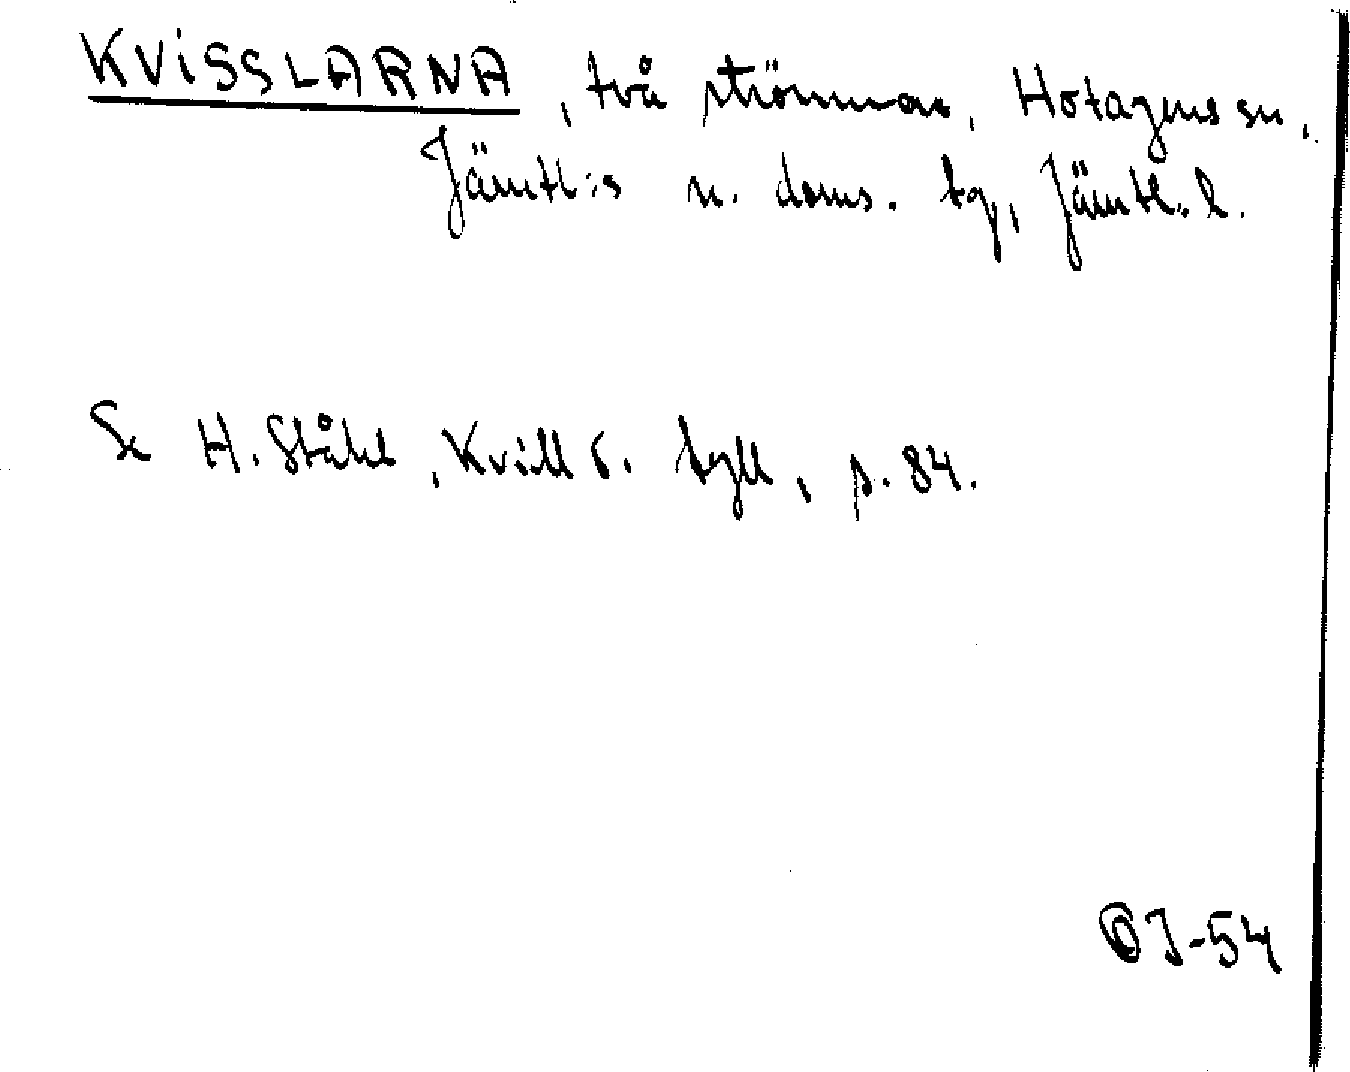 KVISSLARNA, två strömmar, Hotagens sn,
Jämtl:s n. doms. tg, Jämtl:s l.
Se H. Ståhl, Kvill o. tyll, s. 84.
OJ-54